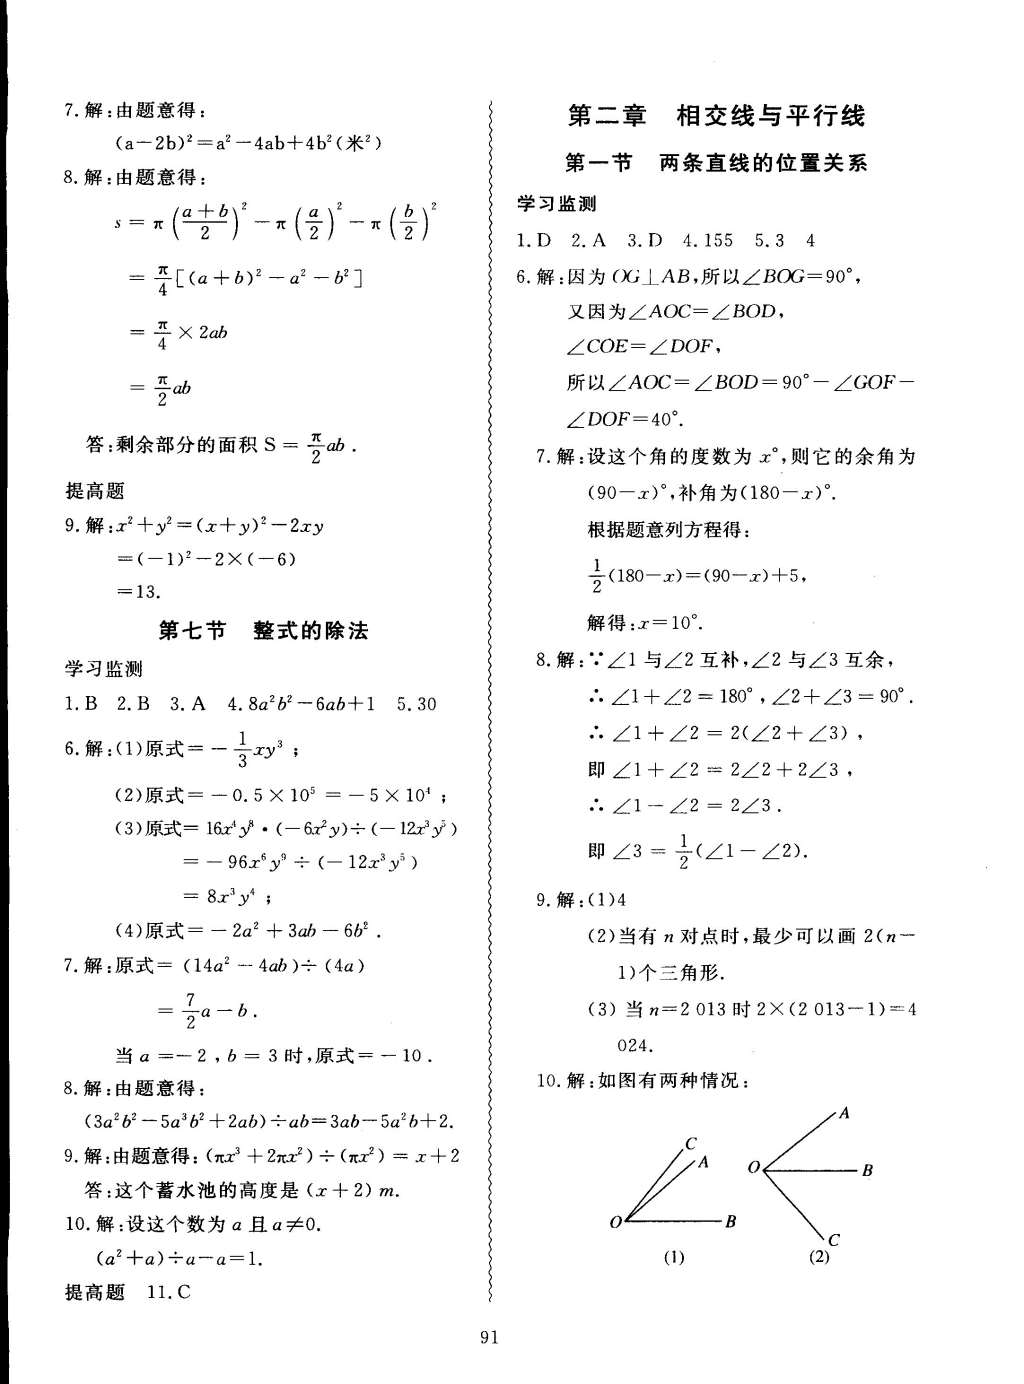 7.解:由题意得:
(a-2b)²=a²-4ab+4b²(米²)
8.解:由题意得:
s = π((a+b)/2)² - π(a/2)² - π(b/2)²
= π/4[(a+b)²-a²-b²]
= π/4×2ab
= π/2 ab
答:剩余部分的面积 S = π/2 ab.
提高题
9.解:x²+y²=(x+y)²-2xy
=(-1)²-2×(-6)
=13.
第七节 整式的除法
学习监测
1.B 2.B 3.A 4.8a²b²-6ab+1 5.30
6.解:(1)原式= -1/3 xy³;
(2)原式= -0.5×10⁵ = -5×10⁴;
(3)原式= 16x⁴y⁸·(-6x²y)÷(-12x³y⁵)
= -96x⁶y⁹÷(-12x³y⁵)
= 8x³y⁴;
(4)原式= -2a²+3ab-6b².
7.解:原式= (14a²-4ab)÷(4a)
= 7/2 a-b.
当 a =-2,b = 3时,原式= -10.
8.解:由题意得:
(3a²b²-5a³b²+2ab)÷ab=3ab-5a²b+2.
9.解:由题意得:(πx³+2πx²)÷(πx²) = x+2
答:这个蓄水池的高度是(x+2) m.
10.解:设这个数为 a 且 a≠0.
(a²+a)÷a-a=1.
提高题 11.C
第二章 相交线与平行线
第一节 两条直线的位置关系
学习监测
1.D 2.A 3.D 4.155 5.3 4
6.解:因为 OG⊥AB,所以∠BOG=90°,
又因为∠AOC=∠BOD,
∠COE=∠DOF,
所以∠AOC=∠BOD=90°-∠GOF-
∠DOF=40°.
7.解:设这个角的度数为 x°,则它的余角为
(90-x)°,补角为(180-x)°.
根据题意列方程得:
1/2(180-x)=(90-x)+5,
解得:x=10°.
8.解:∵∠1与∠2互补,∠2与∠3互余,
∴∠1+∠2=180°,∠2+∠3=90°.
∴∠1+∠2 = 2(∠2+∠3),
即∠1+∠2 = 2∠2+2∠3,
∴∠1-∠2 = 2∠3.
即∠3 = 1/2(∠1-∠2).
9.解:(1)4
(2)当有 n 对点时,最少可以画 2(n-
1)个三角形.
(3) 当 n=2 013 时 2×(2 013-1)=4
024.
10.解:如图有两种情况:
C
A
O
B
(1)
A
O
B
C
(2)
91